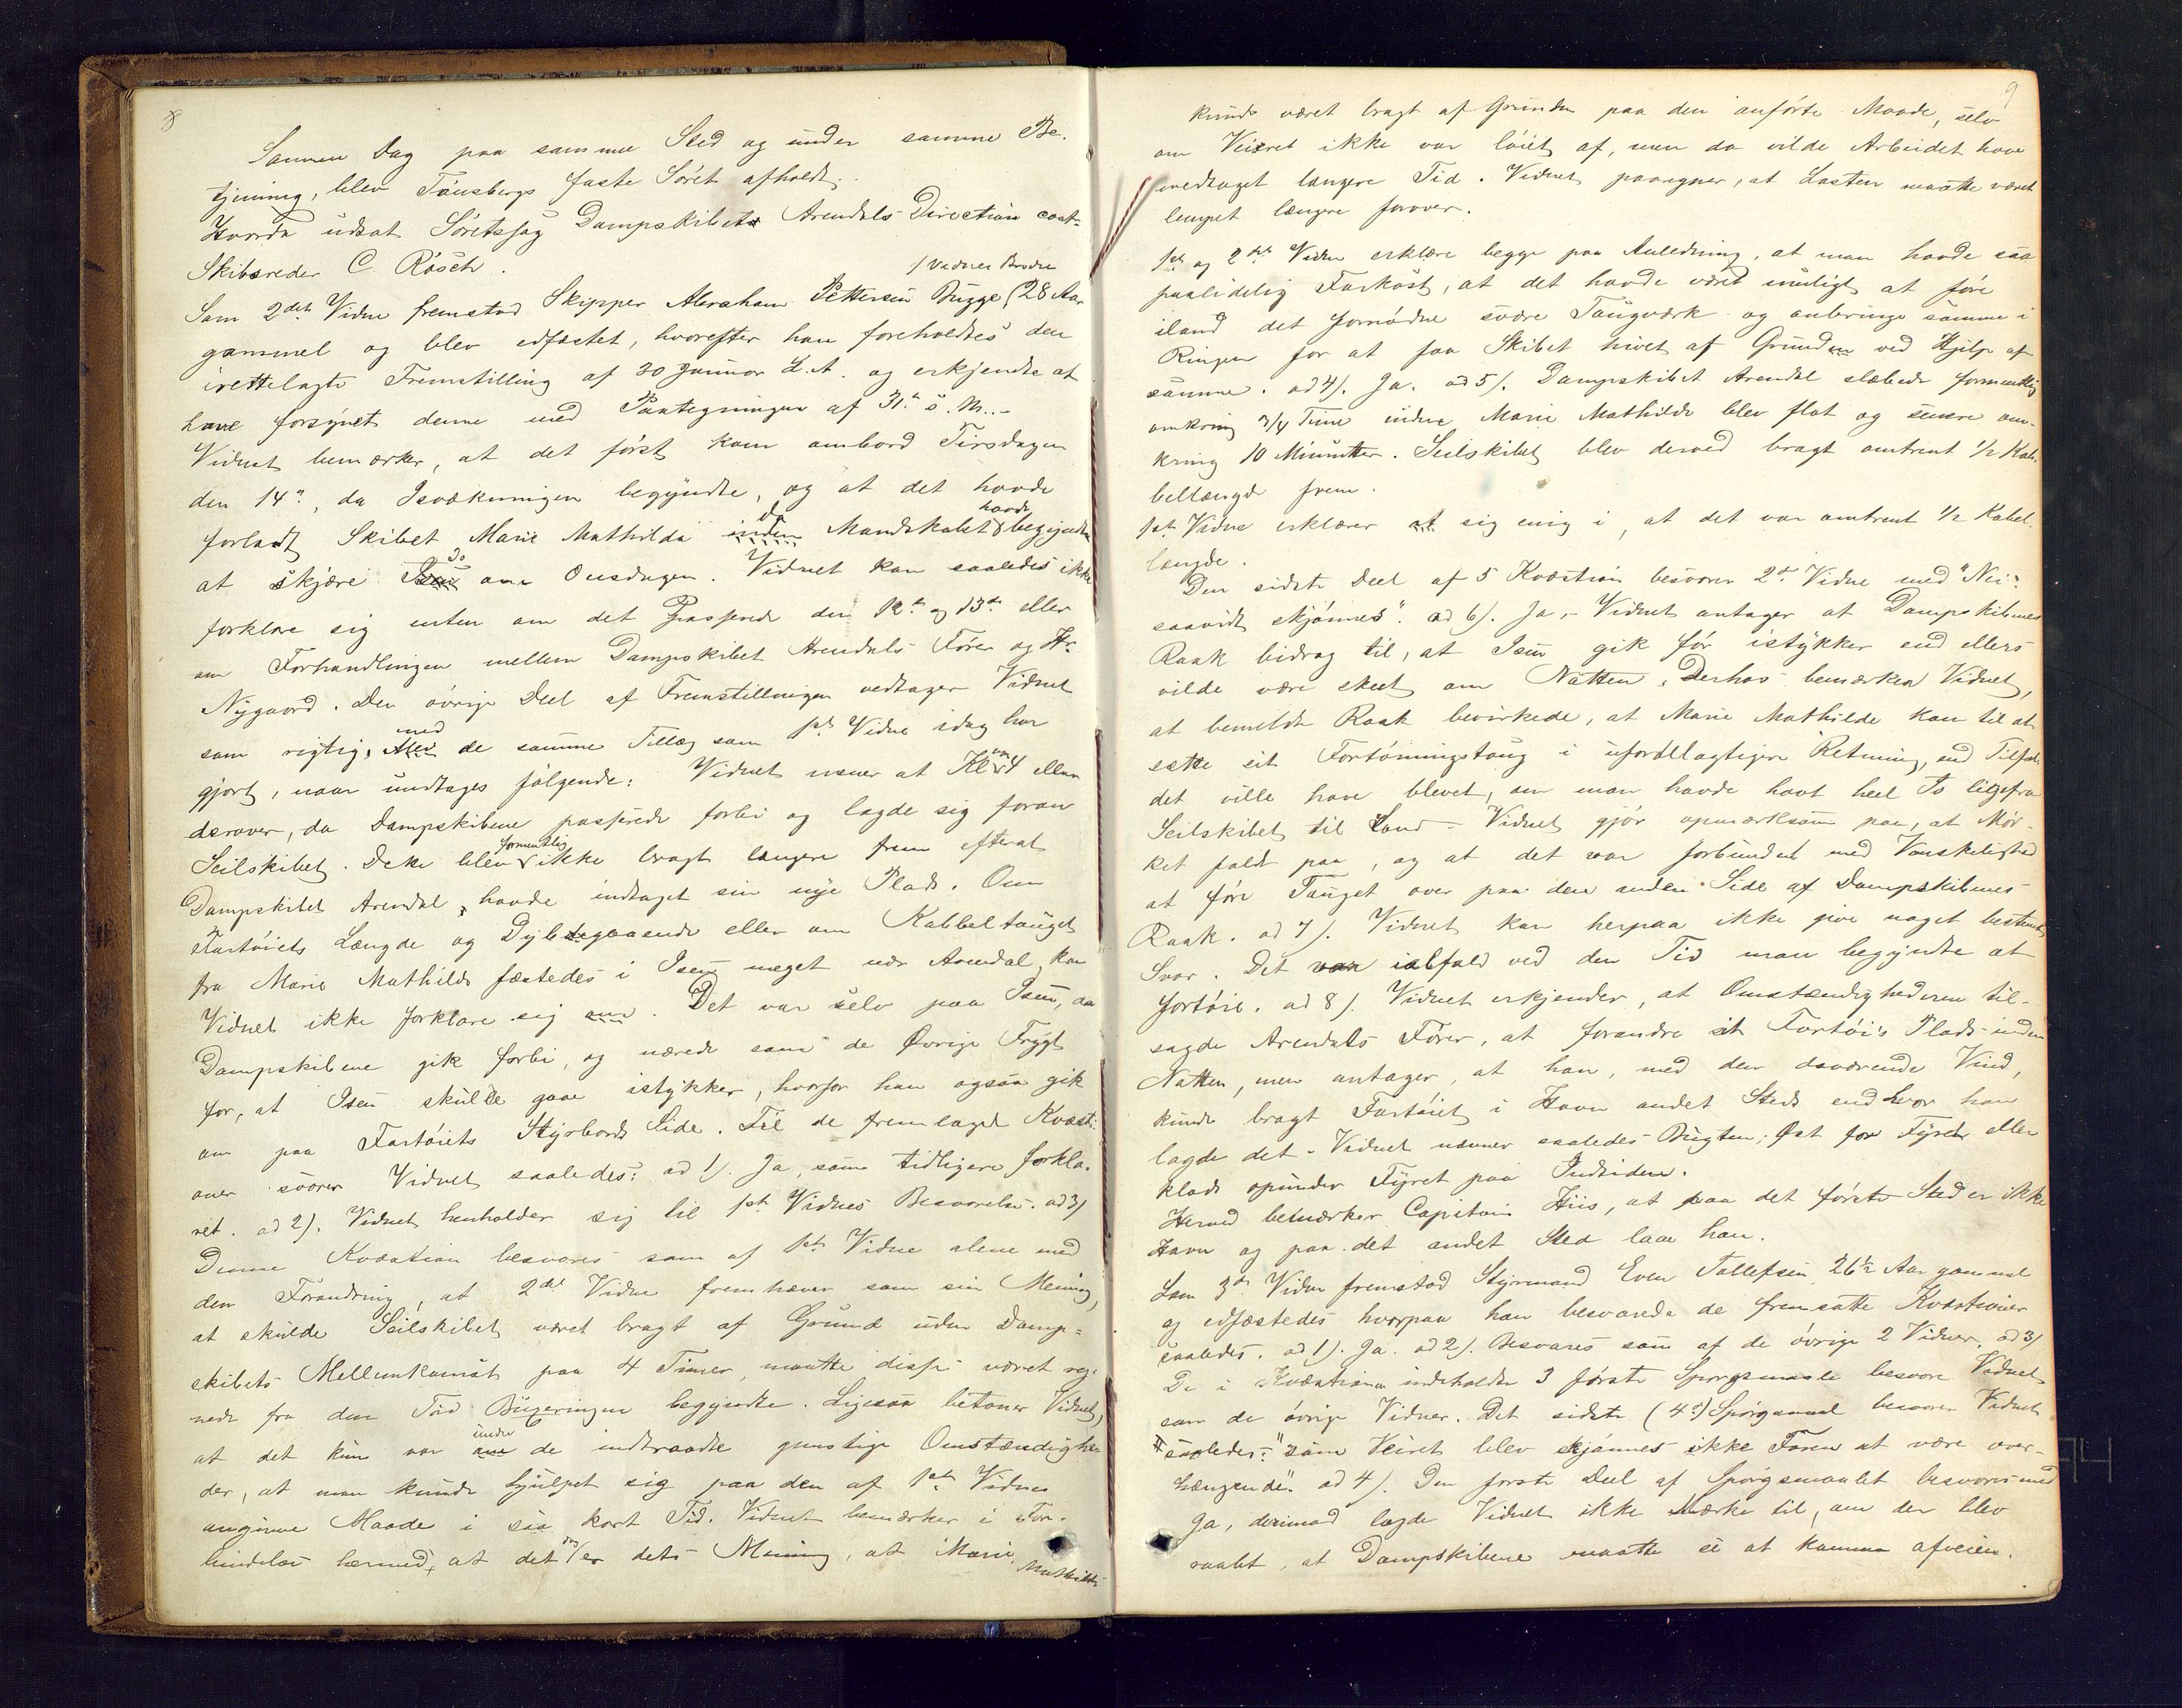 8
Samme Dag paa samme Sted og under samme Be-
tjening, blev Tönsbergs faste Söret afholdt.
Hvorda udsat Söretssag Dampskibet Arendals Direction contra
Skibsreder C Rösch.
1 Vidnes Broder
Som 2det Vidne fremstod Skipper Abraham Pettersen Bugge, (28 Aar
gammel og blev edfæstet, hvorefter han foreholdtes den
irettelagte Fremstilling af 30 Januar d. A. og erkjendte at
have forsynet denne med Paategningen af 31te s. M.-
Vidnet bemærker, at det först kom ombord Tirsdagen
den 14de, da Isvækningen begyndte, og at det havde
forladt Skibet Marie Mathilde da Mandskabet havde begyndt
at skjære do om Onsdagen. Vidnet kan saaledes ikke
forklare sig enten om det Passerede den 12te og 13de eller
om Forhandlingen mellem Dampskibet Arendals Förer og Hr.
Nygaard. Den övrige Deel af Fremstillingen vedtager Vidnet
som rigtig, med de samme Tillæg som 1ste Vidne idag har
gjort, naar undtages fölgende: Vidnet mener at Kl var 4 eller
derover, da Dampskibene passerede forbi og lagde sig foran
Seilskibet. Dette blev formentlig ikke bragt længere frem efterat
Dampskibet Arendal havde indtaget sin nye Plads. Om
Fartöiets Længde og Dybtgaaende eller om Kabbeltouget
fra Marie Mathilde fæstedes i Isen meget nær Arendal kan
Vidnet ikke forklare sig om. Det var selv paa Isen, da
Dampskibene gik forbi, og nærede som de Övrige Frygt
for, at Isen skulde gaae istykker, hvorfor han ogsaa gik
om paa Fartöiets Styrbords Side. Til de fremlagte Kvæsti-
oner svarer Vidnet saaledes: ad 1). Ja, som tidligere forkla-
ret. ad 2). Vidnet henholder sig til 1ste Vidnes Besvarelse. ad 3)
Denne Kvæstion besvares som af 1ste Vidne alene med
den Forandring, at 2det Vidne fremhæver som sin Mening,
at skulde Seilskibet været bragt af Grund uden Damp-
skibets Mellemkomst paa 4 Timer, maatte disse været reg-
nede fra den Tid Bugseringen begyndte. Ligesaa betoner Vidnet,
at det kun var under de indtraadte gunstige Omstændighe-
der, at man kunde hjulpet sig paa den af 1ste Vidne
angivne Maade i saa kort Tid. Vidnet bemærker i For-
bindelse hermed, at det er dets Mening, at Marie Mathilde
9
kunde været bragt af Grunden paa den anförte Maade, selv
om Veiret ikke var löiet af, men da vilde Arbeidet have
medtaget længere Tid. Vidnet paaregner, at Lasten maatte været
lempet længere forover.
1ste og 2det Vidne erklære begge paa Anledning, at man havde saa
paalidelig Farkost, at det havde været muligt at före
iland det fornödne svære Tougværk og anbringe samme i
Ringen for at faa Skibet hivet af Grunden ved Hjelp af
samme. ad 4). Ja. ad 5). Dampskibet Arendal slæbede formentlig
omkring 3/4 Time inden Marie Mathilde blev flot og senere om-
kring 10 Minutter. Seilskibet blev derved bragt omtrent 1/2 Kab-
bellængde frem.
1ste Vidne erklærer sig enig i, at det var omtrent 1/2 Kabel-
længde.
Den sidste Deel af 5 Kvæstion besvarer 2det Vidne med "Nei
saavidt skjönnes". ad 6). Ja,- Vidnet antager at Dampskibenes
Raak bidrog til, at Isen gik för istykker end ellers
vilde være skeet om Natten. Derhos bemærker Vidnet,
at bemeldte Raak bevirkede, at Marie Mathilde kom til at
sætte sit Fortöiningstoug i ufordelagtigere Retning, end Tilfæl-
det ville have blevet, om man havde havt heel Is ligefra
Seilskibet til Land - Vidnet gjör opmærksom paa, at Mör-
ket faldt paa, og at det var forbundet med Vanskelighed
at före Touget over paa den anden Side af Dampskibenes
Raak. ad 7). Vidnet kan herpaa ikke give noget bestemt
Svar. Det var ialfald ved den Tid man begyndte at
fortöie. ad 8). Vidnet erkjender, at Omstændighederne til-
sagde Arendals Förer, at forandre sit Fartöis Plads inden
Natten, men antager, at han, med den daværende Vind,
kunde bragt Fartöiet i Havn andet Steds end hvor han
lagde det - Vidnet nævner saaledes Bugten, Öst for Fyret eller
klods opunder Fyret paa Indsiden.
Herved bemærker Capitain Hiis, at paa det förste Sted er ikke
Havn og paa det andet Sted laae han.
Som 3die Vidne fremstod Styrmand Even Tollefsen, 26½ Aar gammel
og edfæstedes hvorpaa han besvarede de fremsatte Kvæstioner
saaledes. ad 1). Ja. ad 2). Besvares som af de övrige 2 Vidner. ad 3)
De i Kvæstionen indeholdte 3 förste Spörgsmaale besvarer Vidnet
som de övrige Vidner. Det sidste (4de) Spörgsmaal besvarer Vidnet
saaledes: "som Veiret blev skjönnes ikke Faren at være over-
hængende". ad 4). Den förste Deel af Spörgsmaalet besvares med
Ja, derimod lagde Vidnet ikke Mærke til, om der blev
raabt, at Dampskibene maatte se at komme afveien.